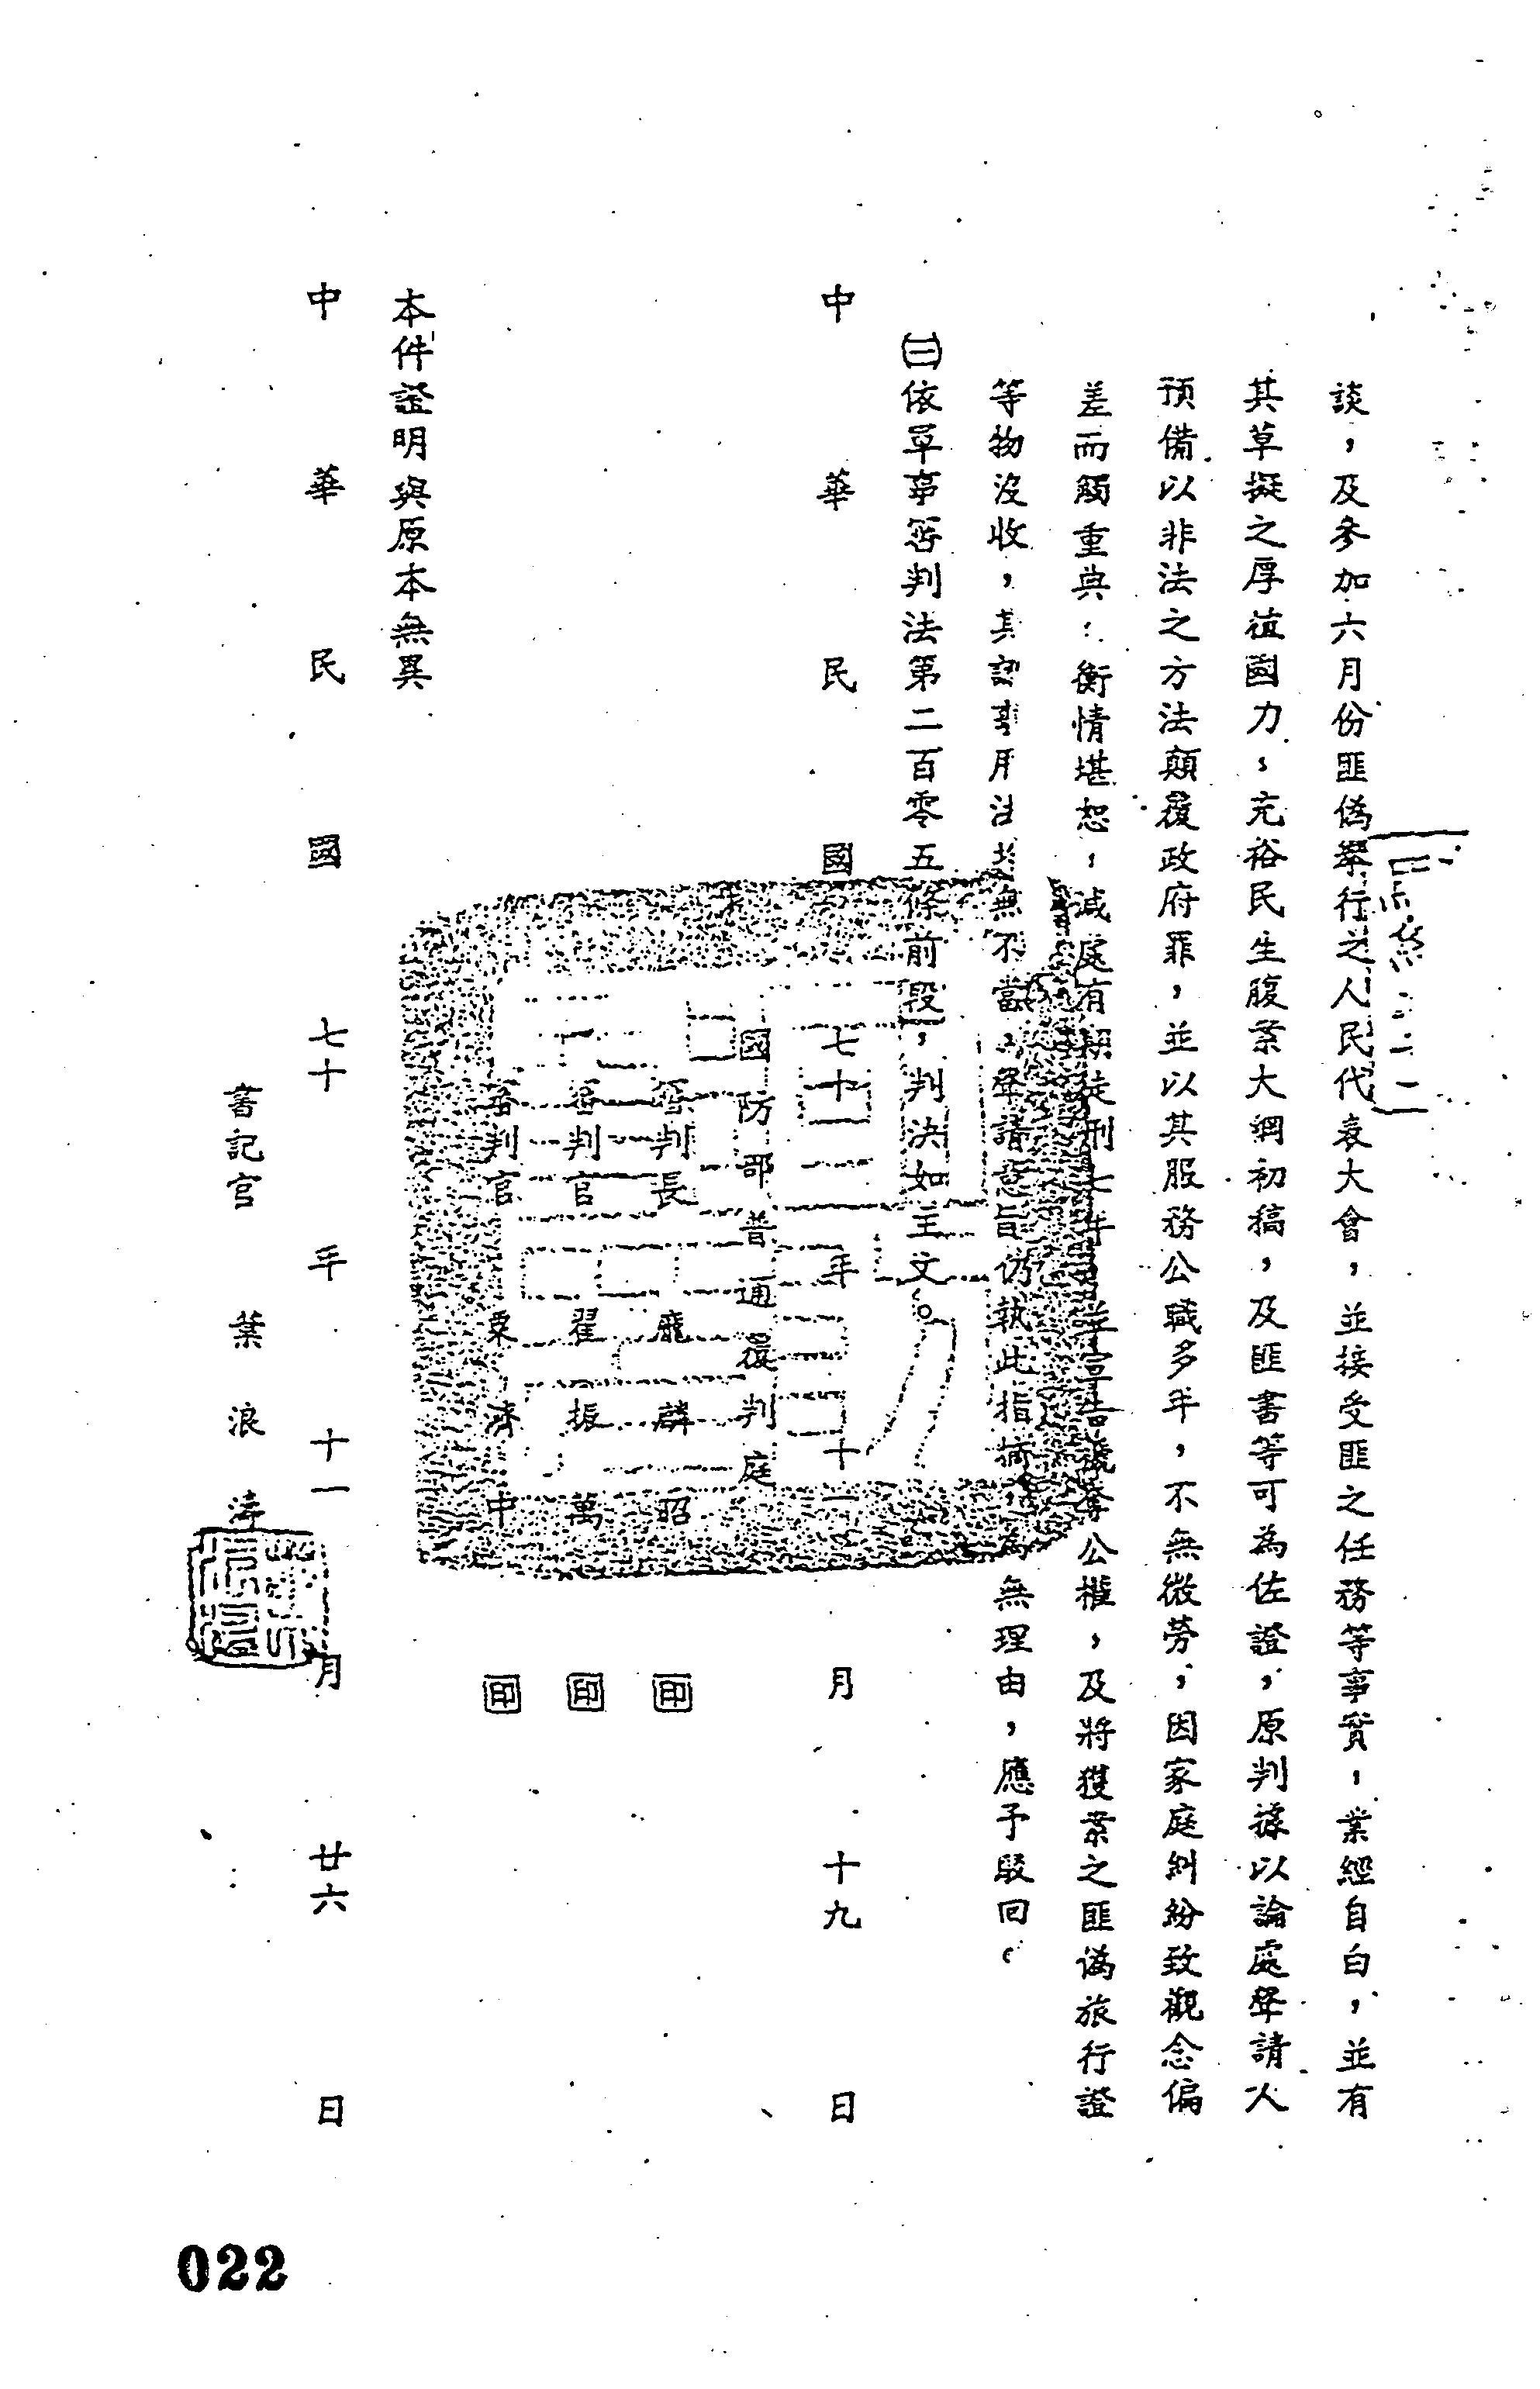 談，及參加六月份匪偽舉行之人民代表大會，並接受匪之任務等事實，業經自白，並有
其草擬之厚植國力，充裕民生腹案大綱初稿，及匪書等可為佐證，原判據以論處聲請人
預備以非法之方法顛覆政府罪，並以其服務公職多年，不無微勞，因家庭糾紛致觀念偏
差而觸重典，衡情堪恕，減處有期徒刑七年，並宣告褫奪公權，及將獲案之匪偽旅行證
等物沒收，其認事用法均無不當，聲請意旨仍執此指摘，為無理由，應予駁回。
㈢依軍事審判法第二百零五條前段，判決如主文。
中華民國七十年十一月十九日
國防部普通覆判庭
審判長 龐麟昭 印
審判官 翟振萬 印
審判官 粟濟中 印
本件證明與原本無異
中華民國七十年十一月廿六日
書記官 葉浪濤
022